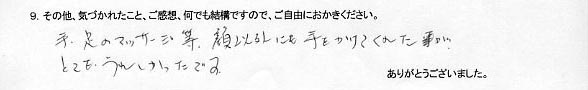 9. その他、気づかれたこと、ご感想、何でも結構ですので、ご自由におかきください。
手、足のマッサージ等、顔以外にも手をかけてくれた事が、
とても、うれしかったです。
ありがとうございました。